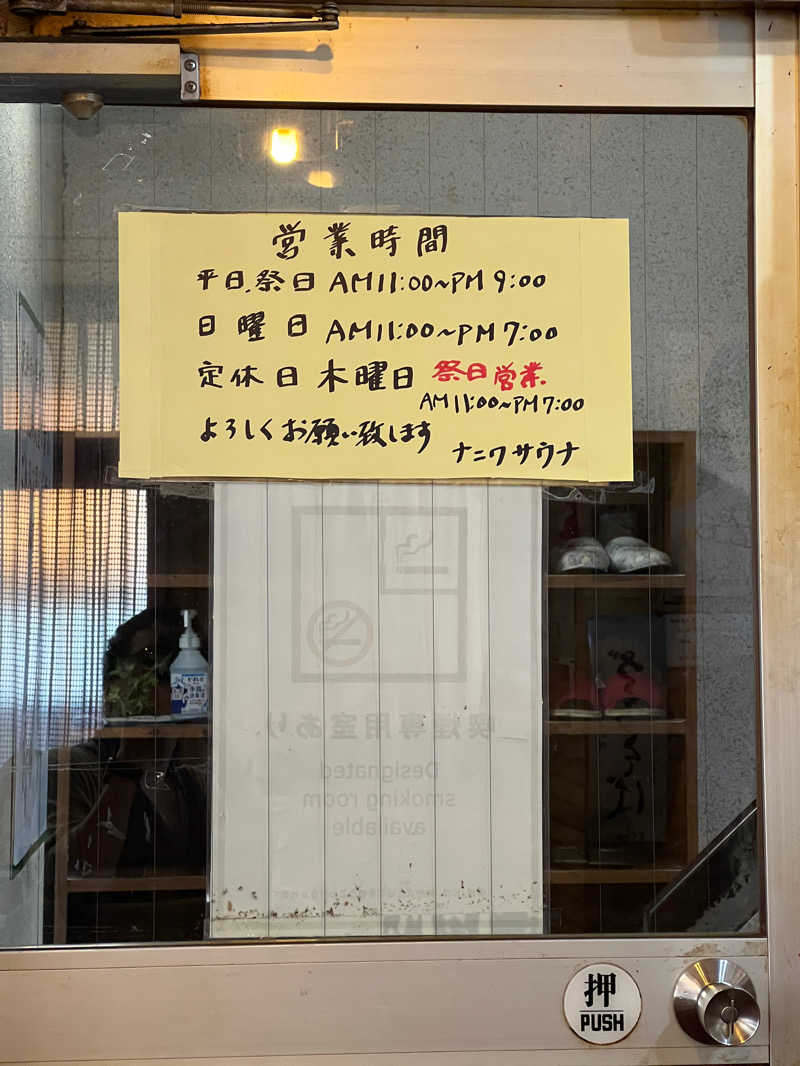 営業時間
平日.祭日 AM11:00~PM9:00
日曜日 AM11:00~PM7:00
定休日 木曜日 祭日営業
AM11:00~PM7:00
よろしくお願い致します
ナニワサウナ
喫煙専用室あり
Designated
smoking room
available
押
PUSH